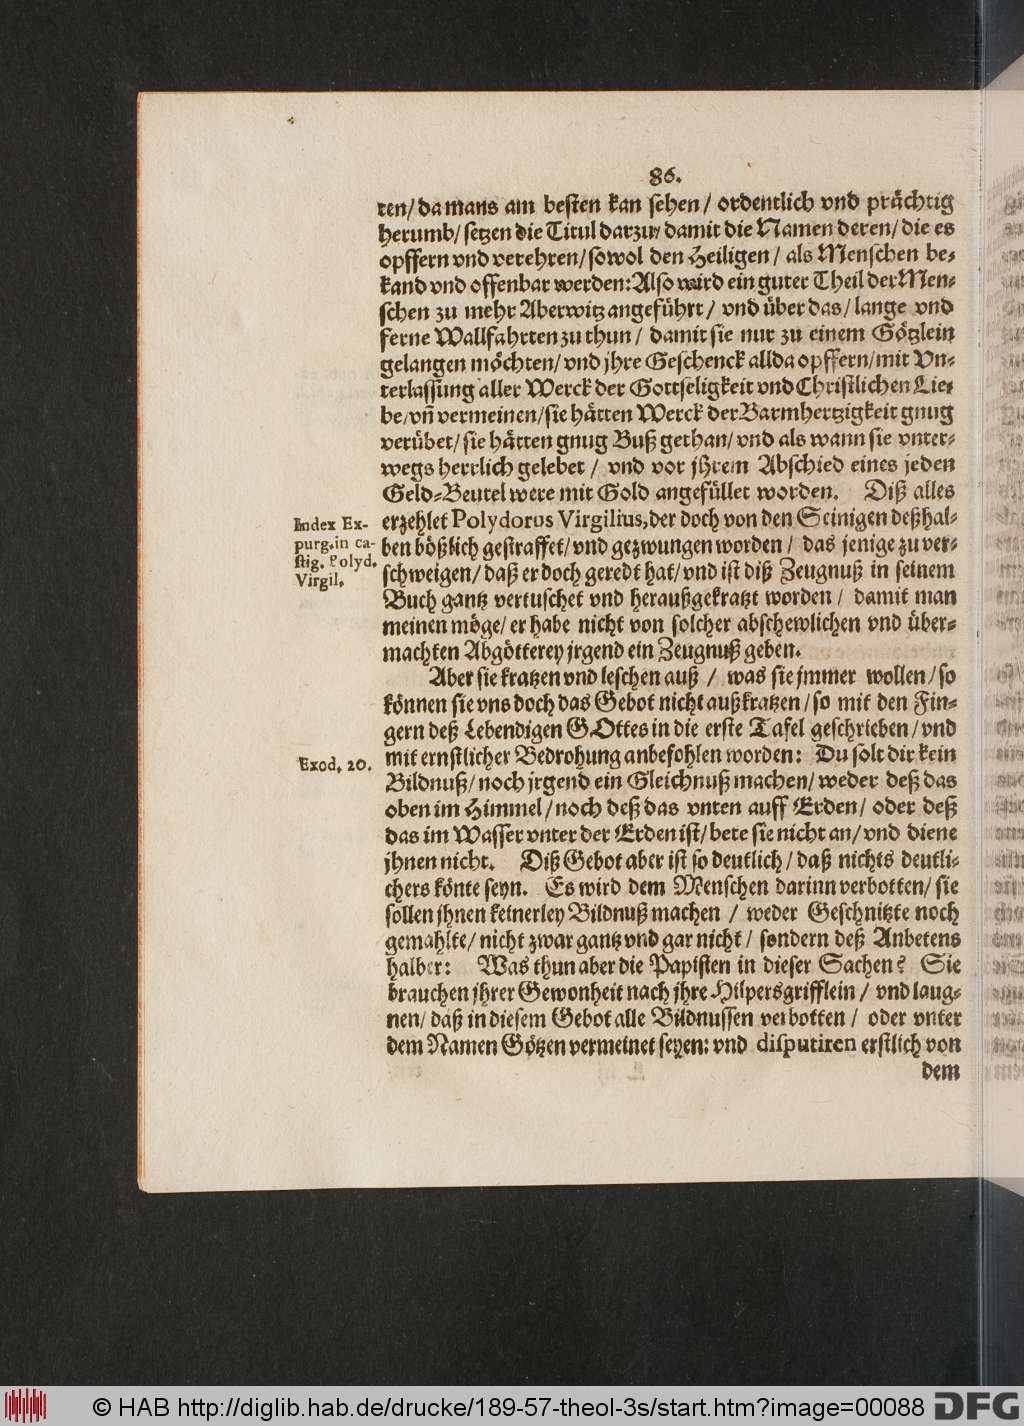 86.
ren/ da mans am besten kan sehen/ ordentlich vnd prächtig
herumb/ setzen die Titul darzu/ damit die Namen deren/ die es
opffern vnd verehren/ sowol den Heiligen/ als Menschen be-
kand vnd offenbar werden: Also wird ein guter Theil der Men-
schen zu mehr Aberwitz angeführt/ vnd über das/ lange vnd
ferne Wallfahrten zu thun/ damit sie nur zu einem Götzlein
gelangen möchten/ vnd jhre Geschenck allda opffern/ mit Vn-
terlassung aller Werck der Gottseligkeit vnd Christlichen Lie-
be/ vñ vermeinen/ sie hätten Werck der Barmhertzigkeit gnug
verübet/ sie hätten gnug Buß gethan/ vnd als wann sie vnter-
wegs herrlich gelebet/ vnd vor jhrem Abschied eines jeden
Geld-Beutel were mit Gold angefüllet worden. Diß alles
erzehlet Polydorus Virgilius, der doch von den Seinigen deßhal-
ben bößlich gestraffet/ vnd gezwungen worden/ das jenige zu ver-
schweigen/ daß er doch geredt hat/ vnd ist diß Zeugnuß in seinem
Buch gantz vertuschet vnd heraußgekratzt worden/ damit man
meinen möge/ er habe nicht von solcher abschewlichen vnd über-
machten Abgötterey jrgend ein Zeugnuß geben.
Index Ex-
purg. in ca-
stig. Polyd.
Virgil.
Aber sie kratzen vnd leschen auß/ was sie jmmer wollen/ so
können sie vns doch das Gebot nicht außkratzen/ so mit den Fin-
gern deß Lebendigen GOttes in die erste Tafel geschrieben/ vnd
mit ernstlicher Bedrohung anbefohlen worden: Du solt dir kein
Bildnuß/ noch jrgend ein Gleichnuß machen/ weder deß das
oben im Himmel/ noch deß das vnten auff Erden/ oder deß
das im Wasser vnter der Erden ist/ bete sie nicht an/ vnd diene
jhnen nicht. Diß Gebot aber ist so deutlich/ daß nichts deutli-
chers könte seyn. Es wird dem Menschen darinn verbotten/ sie
sollen jhnen keinerley Bildnuß machen/ weder Geschnitzte noch
gemahlte/ nicht zwar gantz vnd gar nicht/ sondern deß Anbetens
halber: Was thun aber die Papisten in dieser Sachen? Sie
brauchen jhrer Gewonheit nach jhre Hilpersgrifflein/ vnd laug-
nen/ daß in diesem Gebot alle Bildnussen verbotten/ oder vnter
dem Namen Götzen vermeinet seyen: vnd disputiren erstlich von
dem
Exod. 20.
© HAB http://diglib.hab.de/drucke/189-57-theol-3s/start.htm?image=00088
DFG